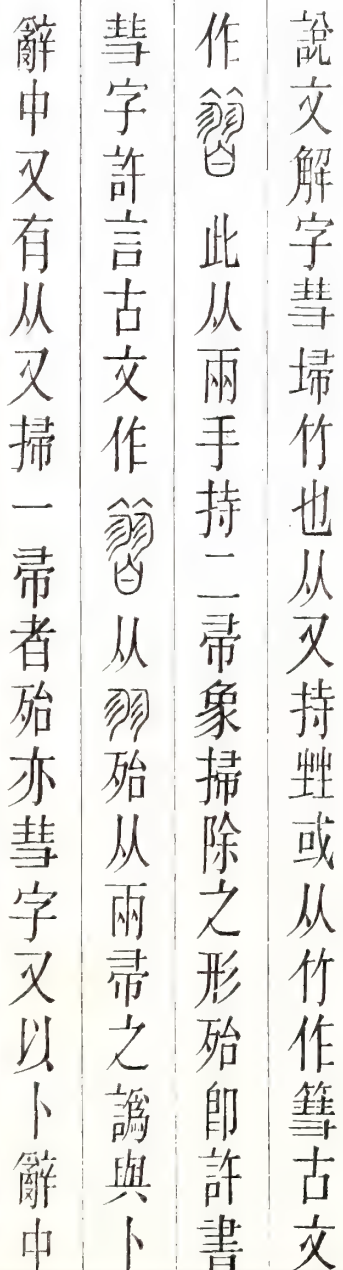 說文解字彗埽竹也从又持甡或从竹作篲古文
作 此从兩手持二帚象掃除之形殆卽許書
彗字許言古文作 从羽殆从兩帚之譌與卜
辭中又有从又掃一帚者殆亦彗字又以卜辭中